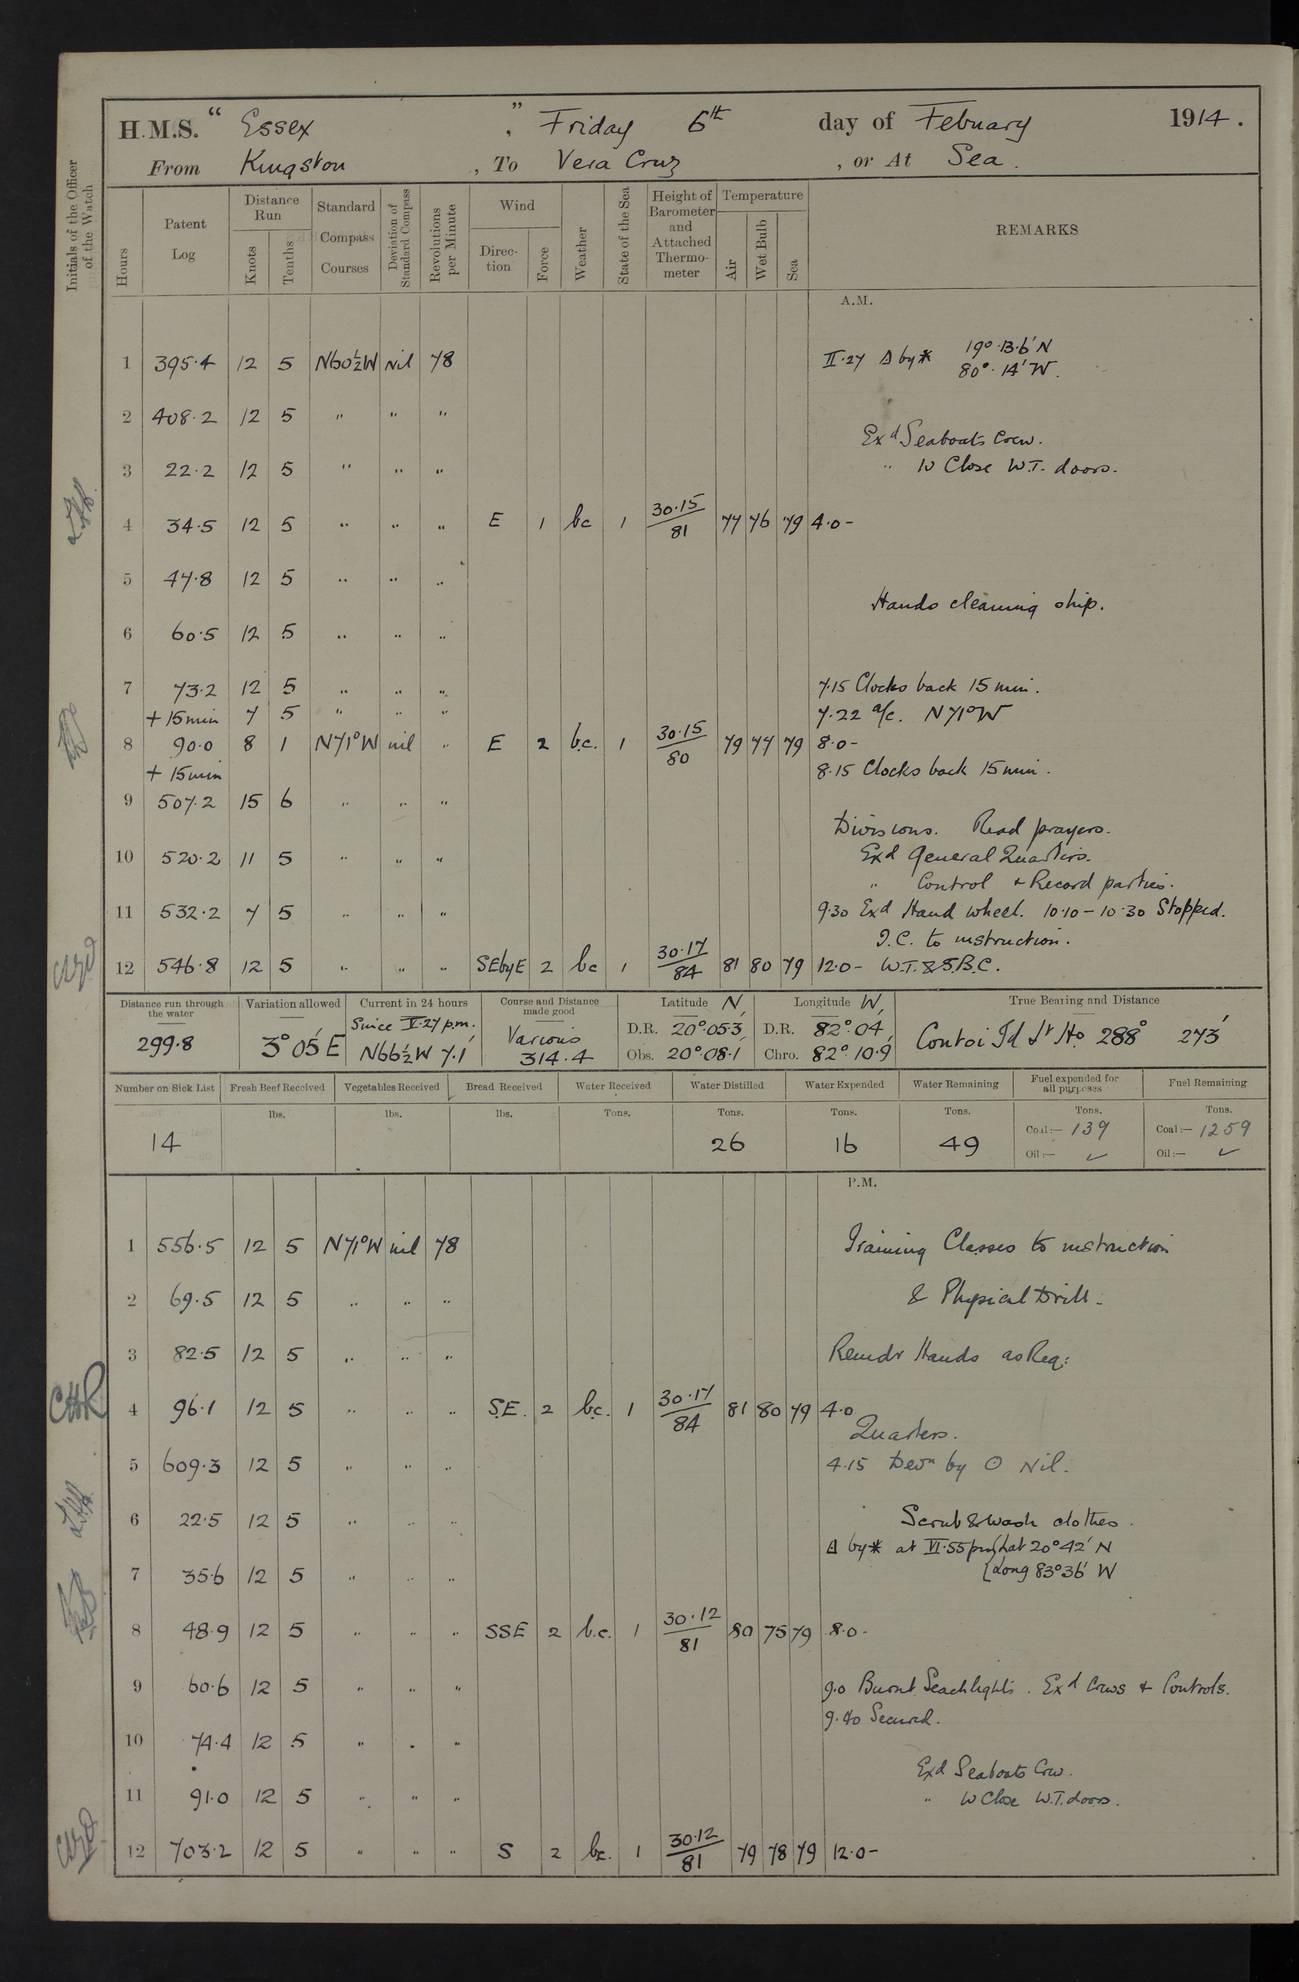 H.M.S. "Essex", Friday 6th day of Febuary 1914.
From Kingston, To Vera Cruz, or At Sea.
Initials of the Officer of the Watch
Hours Patent Log Distance Run Knots Tenths Standard Compass Courses Deviation of Standard Compass Revolutions per Minute Wind Direction Force Weather State of the Sea Height of Barometer and Attached Thermometer Temperature Air Wet Bulb Sea REMARKS
A.M.
1 395.4 12 5 N60½W Nil 78 II.27 ∆ by * 19°.13.6'N
80°.14'W.
2 408.2 12 5 " " "
Exd Seaboats Crew.
3 22.2 12 5 " " " " to Close W.T. doors.
4 34.5 12 5 " " " E 1 bc 1 30.15/81 77 76 79 4.0-
5 47.8 12 5 " " "
Hands cleaning ship.
6 60.5 12 5 " " "
7 73.2 12 5 " " " 7.15 Clocks back 15 min.
+15min 7 5 " " " 7.22 a/c. N71°W
8 90.0 8 1 N71°W nil " E 2 b.c. 1 30.15/80 79 77 79 8.0-
+15min 8.15 Clocks back 15 min.
9 507.2 15 6 " " "
Divisions. Read prayers.
10 520.2 11 5 " " " Exd General Quarters.
" Control & Record parties.
11 532.2 7 5 " " " 9.30 Exd Hand wheel. 10.10-10.30 Stopped.
I.C. to instruction.
12 546.8 12 5 " " " SEbyE 2 bc 1 30.17/84 81 80 79 12.0- W.T. & S.B.C.
Distance run through the water Variation allowed Current in 24 hours Course and Distance made good Latitude N, Longitude W, True Bearing and Distance
299.8 3°05'E Since V.27 p.m. N66½W 7.1' Various 314.4 D.R. 20°.05.3' D.R. 82°.04' Contoi Id Lt Ho 288° 273'
Obs. 20°.08.1' Chro. 82°.10.9'
Number on Sick List Fresh Beef Received Vegetables Received Bread Received Water Received Water Distilled Water Expended Water Remaining Fuel expended for all purposes Fuel Remaining
lbs. lbs. lbs. Tons. Tons. Tons. Tons. Tons. Tons.
14 26 16 49 Coal:— 139 Coal:— 1259
Oil:— ✓ Oil:— ✓
P.M.
1 556.5 12 5 N71°W nil 78 Training Classes to instruction
2 69.5 12 5 " " " & Physical Drill.
3 82.5 12 5 " " " Remdr Hands as Req:
4 96.1 12 5 " " " S.E. 2 b.c. 1 30.17/84 81 80 79 4.0
Quarters.
5 609.3 12 5 " " " 4.15 Devn by O Nil.
6 22.5 12 5 " " " Scrub & wash clothes.
∆ by * at VI.55pm {Lat 20°42' N
7 35.6 12 5 " " " {Long 83°36' W
8 48.9 12 5 " " " SSE 2 b.c. 1 30.12/81 80 75 79 8.0-
9 60.6 12 5 " " " 9.0 Burnt Seachlights. Exd Crews & Controls.
9.40 Secured.
10 74.4 12 5 " " "
Exd Seaboats Crew.
11 91.0 12 5 " " " " to Close W.T. doors.
12 703.2 12 5 " " " S 2 bc. 1 30.12/81 79 78 79 12.0-